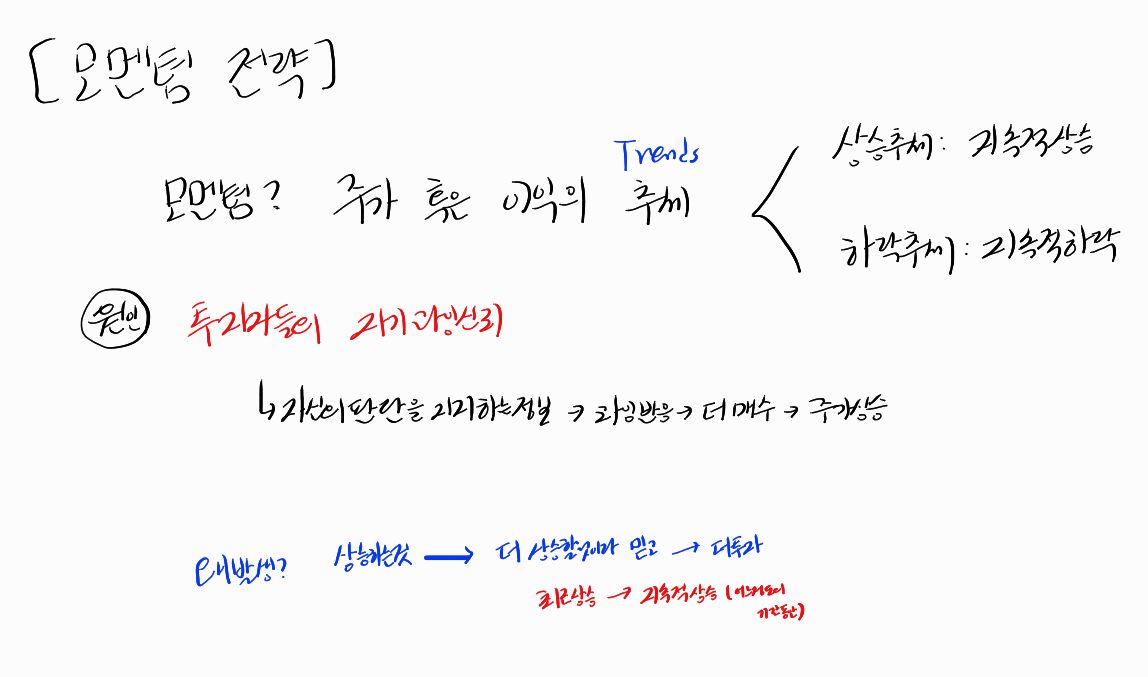 [모멘텀 전략]
Trends
모멘텀? 주가 혹은 이익의 추세
상승추세: 지속적상승
하락추세: 지속적하락
원인 투자자들의 자기과잉신뢰
↳ 자신의판단을 지지하는정보 → 과잉반응 → 더 매수 → 주가상승
왜발생? 상승하는것 → 더 상승할것이라 믿고 → 더투자
최근상승 → 지속적상승 (어느정도의
기간동안)